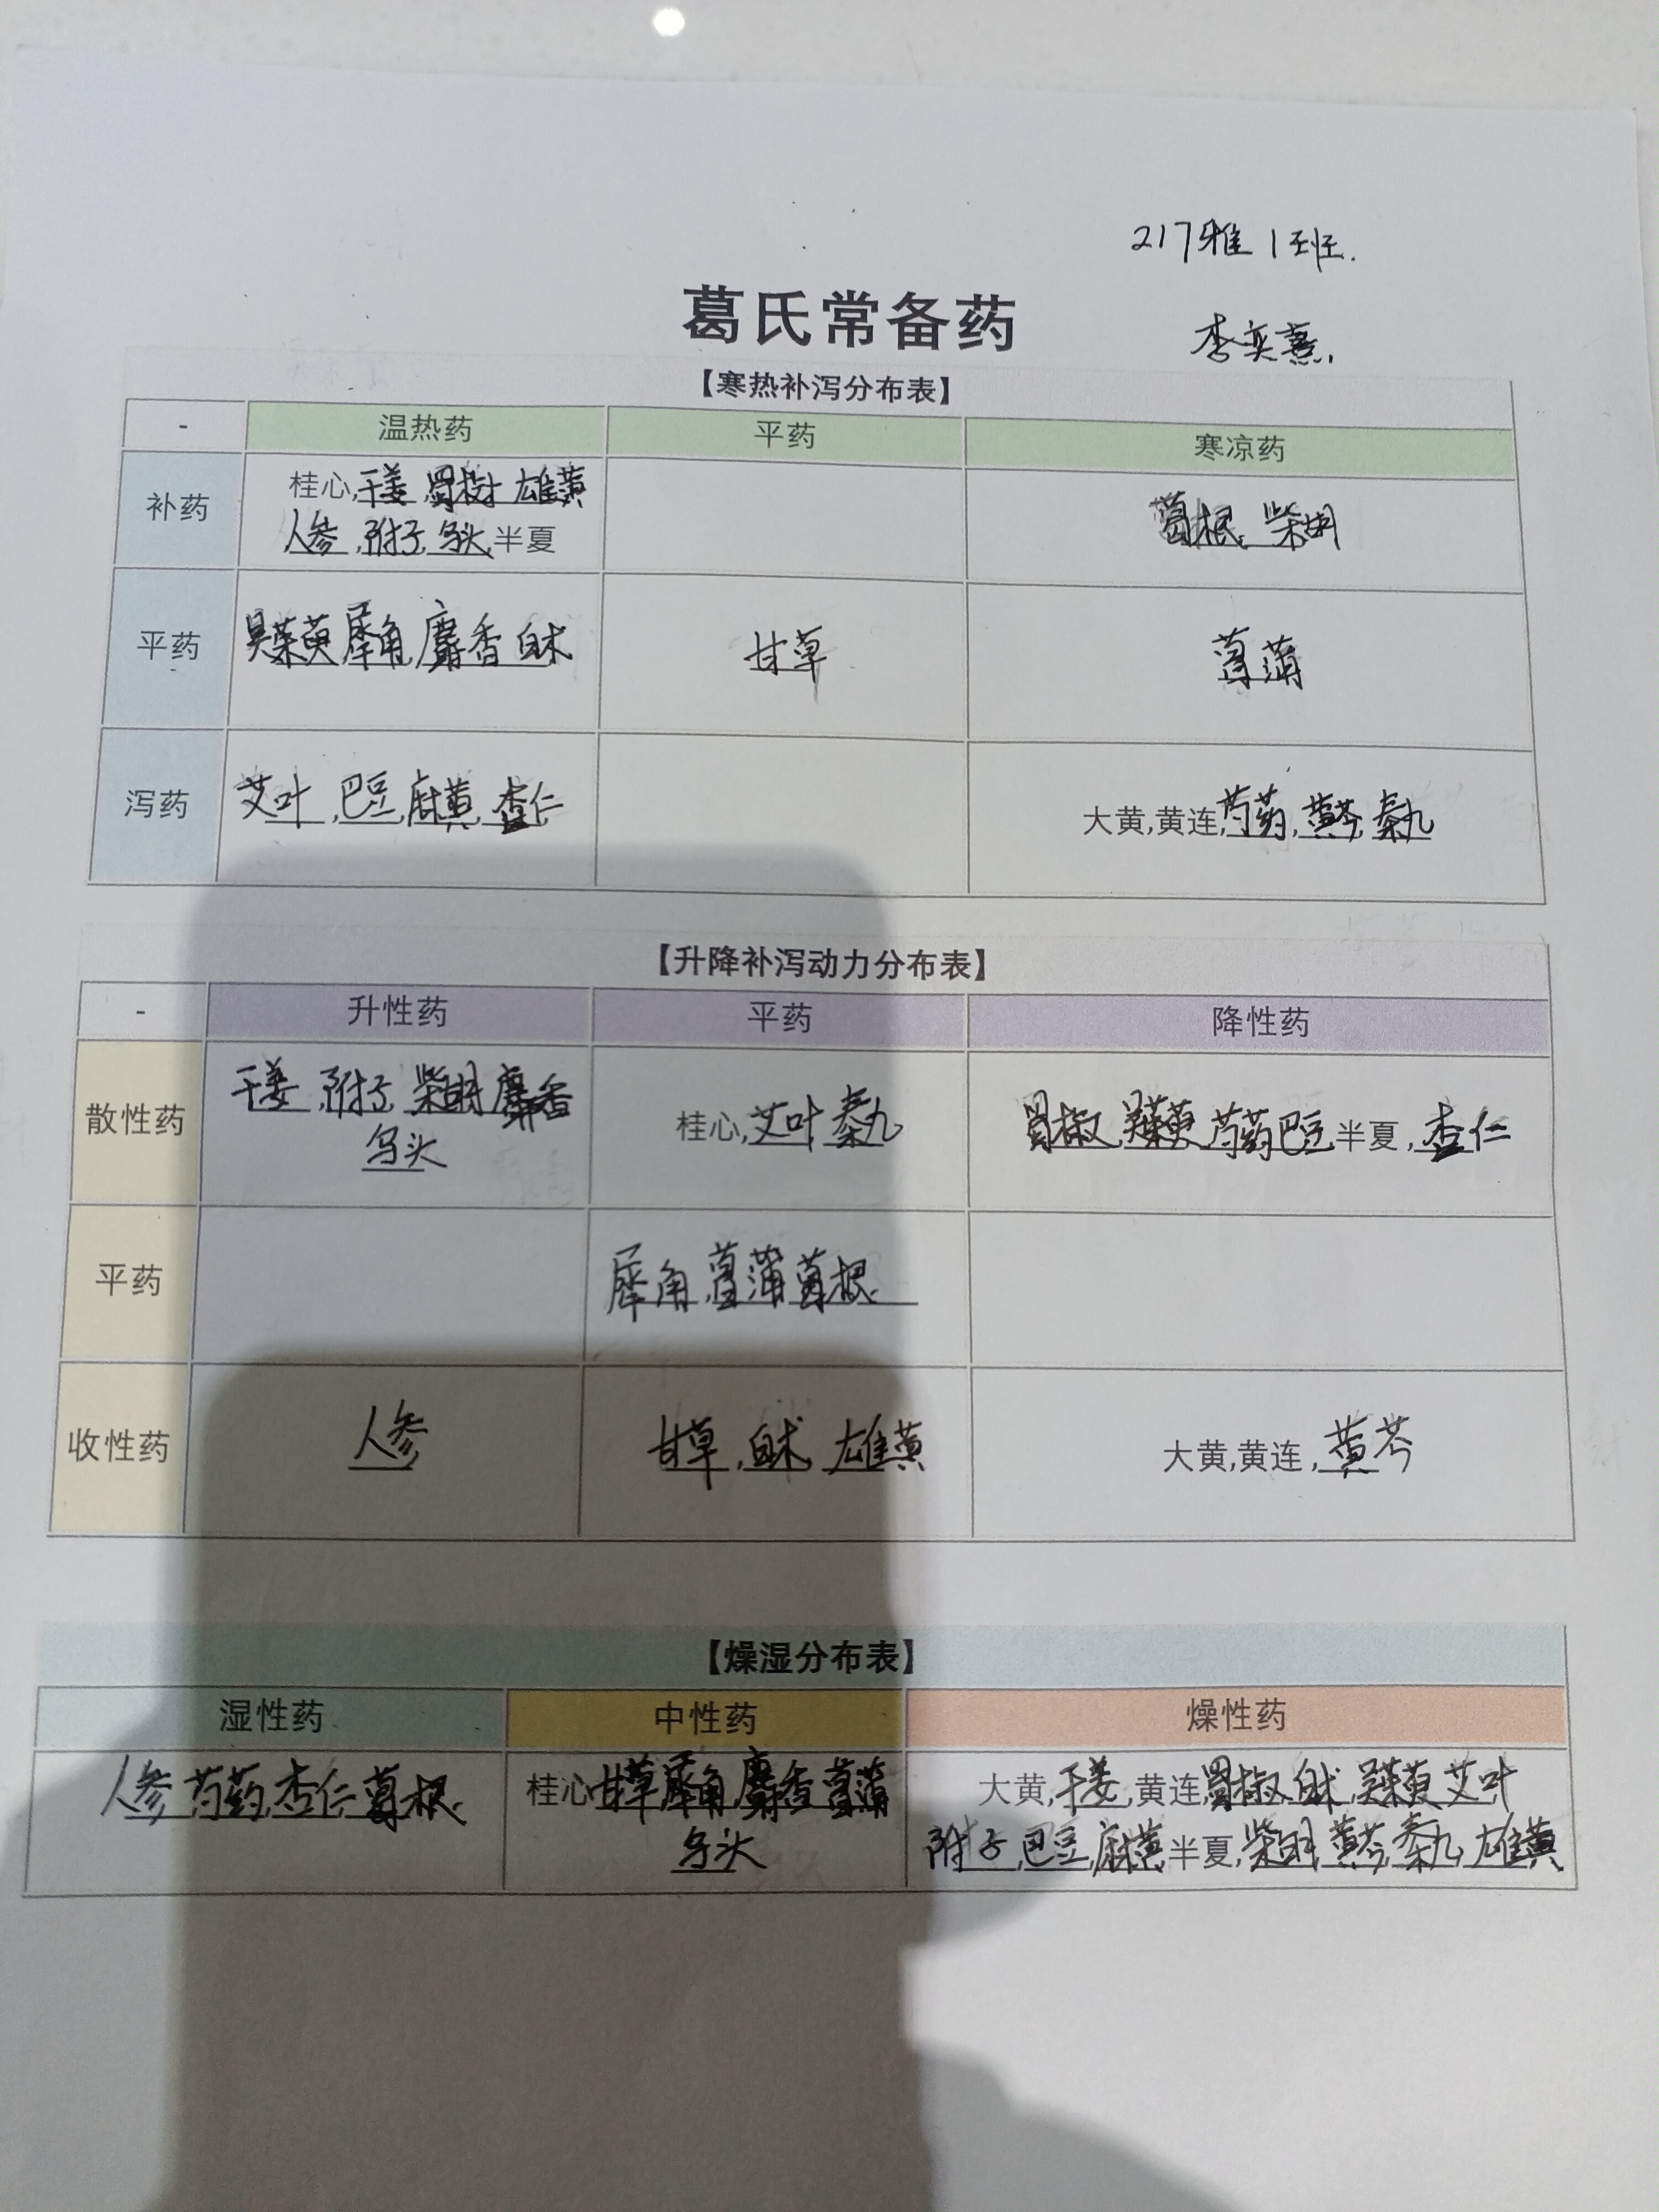 217雅1班.
葛氏常备药
李奕熹.
【寒热补泻分布表】
- 温热药 平药 寒凉药
补药
桂心,干姜 蜀椒 雄黄
人参,附子,乌头,半夏
葛根,柴胡
平药
吴茱萸,犀角,麝香 白术
甘草
菖蒲
泻药
艾叶,巴豆,麻黄,杏仁
大黄,黄连,芍药,黄芩,秦艽
【升降补泻动力分布表】
- 升性药 平药 降性药
散性药
干姜,附子,柴胡 麝香
乌头
桂心,艾叶 秦艽
蜀椒,吴茱萸 芍药 巴豆,半夏,杏仁
平药
犀角,菖蒲 葛根
收性药
人参
甘草,白术 雄黄
大黄,黄连,黄芩
【燥湿分布表】
湿性药 中性药 燥性药
人参 芍药,杏仁 葛根
桂心甘草 犀角 麝香 菖蒲
乌头
大黄,干姜,黄连,蜀椒,白术,吴茱萸 艾叶
附子,巴豆,麻黄,半夏,柴胡 黄芩,秦艽,雄黄